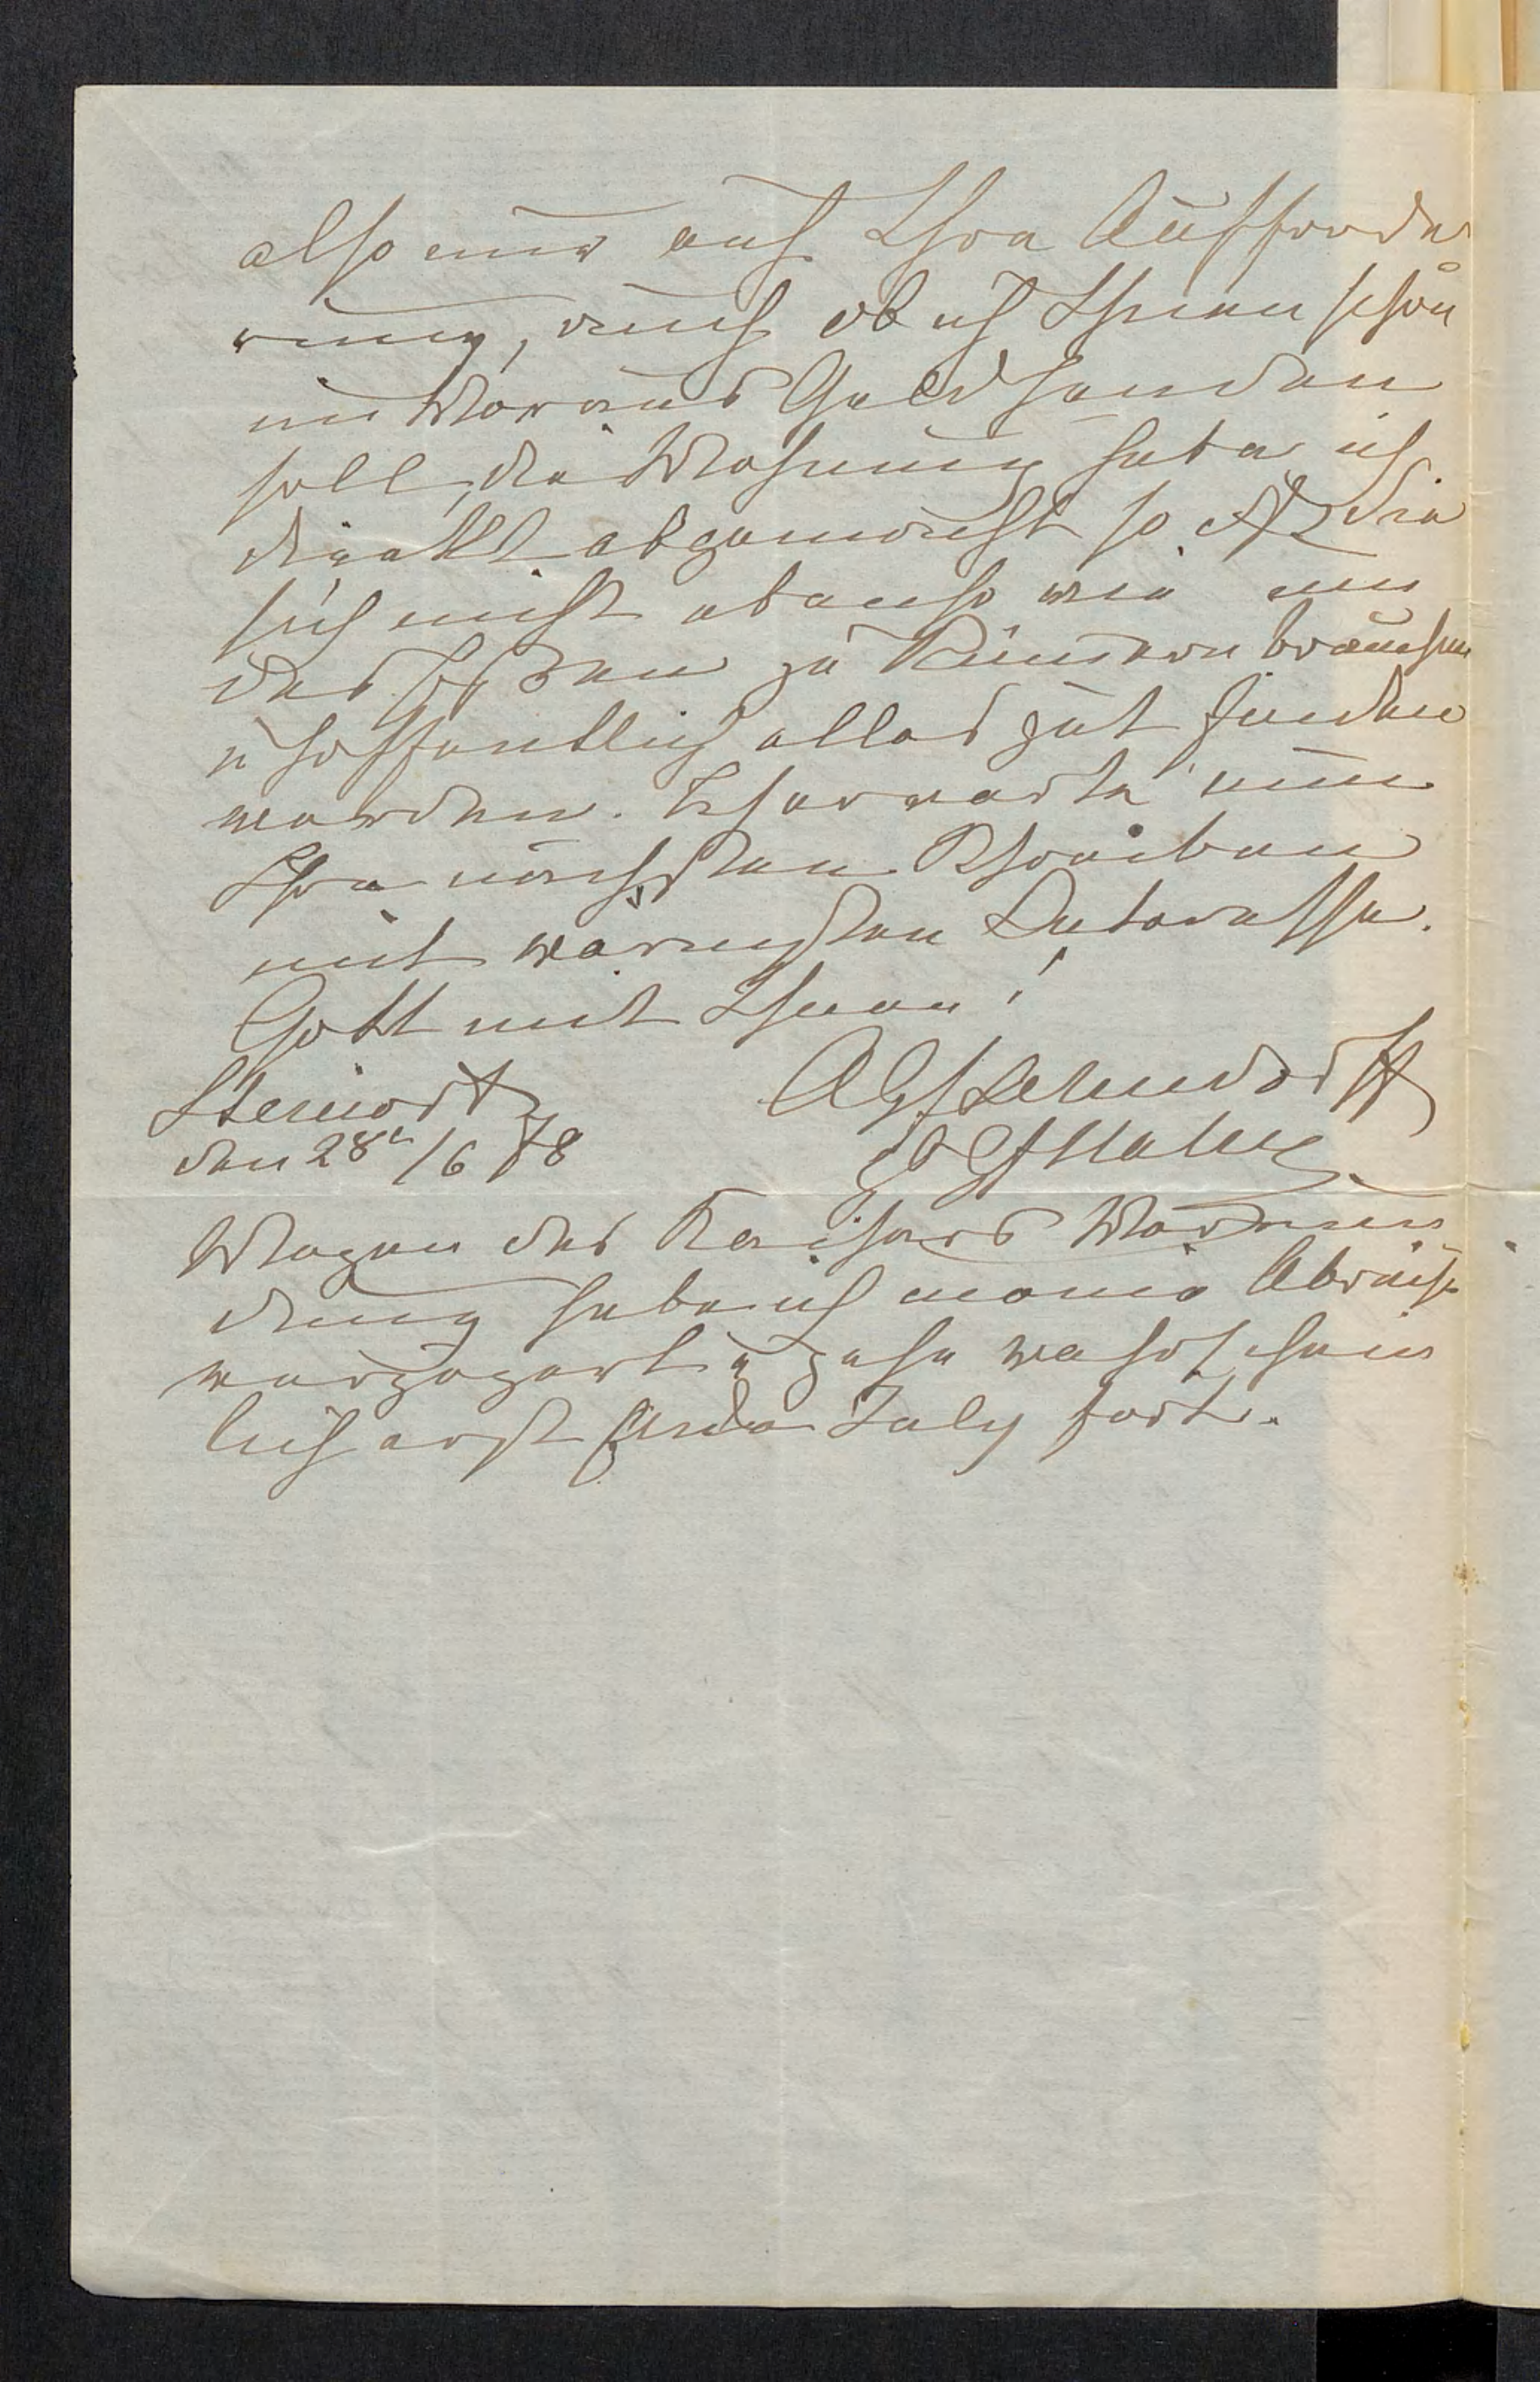 also nur auf Ihre Aufforde
rung, auch ob ich Ihnen schon
im Voraus Geld senden
soll, die Wohnung habe ich
direkt abgemacht so daß Sie
sich nicht ebenso wie um
das Essen zu kümmern brauchen
u hoffentlich alles gut finden
werden. Ich erwarte nun
Ihr nächstes Schreiben
mit warmen Interesse.
Gott mit Ihnen!
Steinort AGfLehndorff
den 28t/6 78 GfHahn
Wegen des Kaisers Verwun
dung habe ich meine Abreise
verzögert u gehe wahrschein
lich erst Ende July fort.